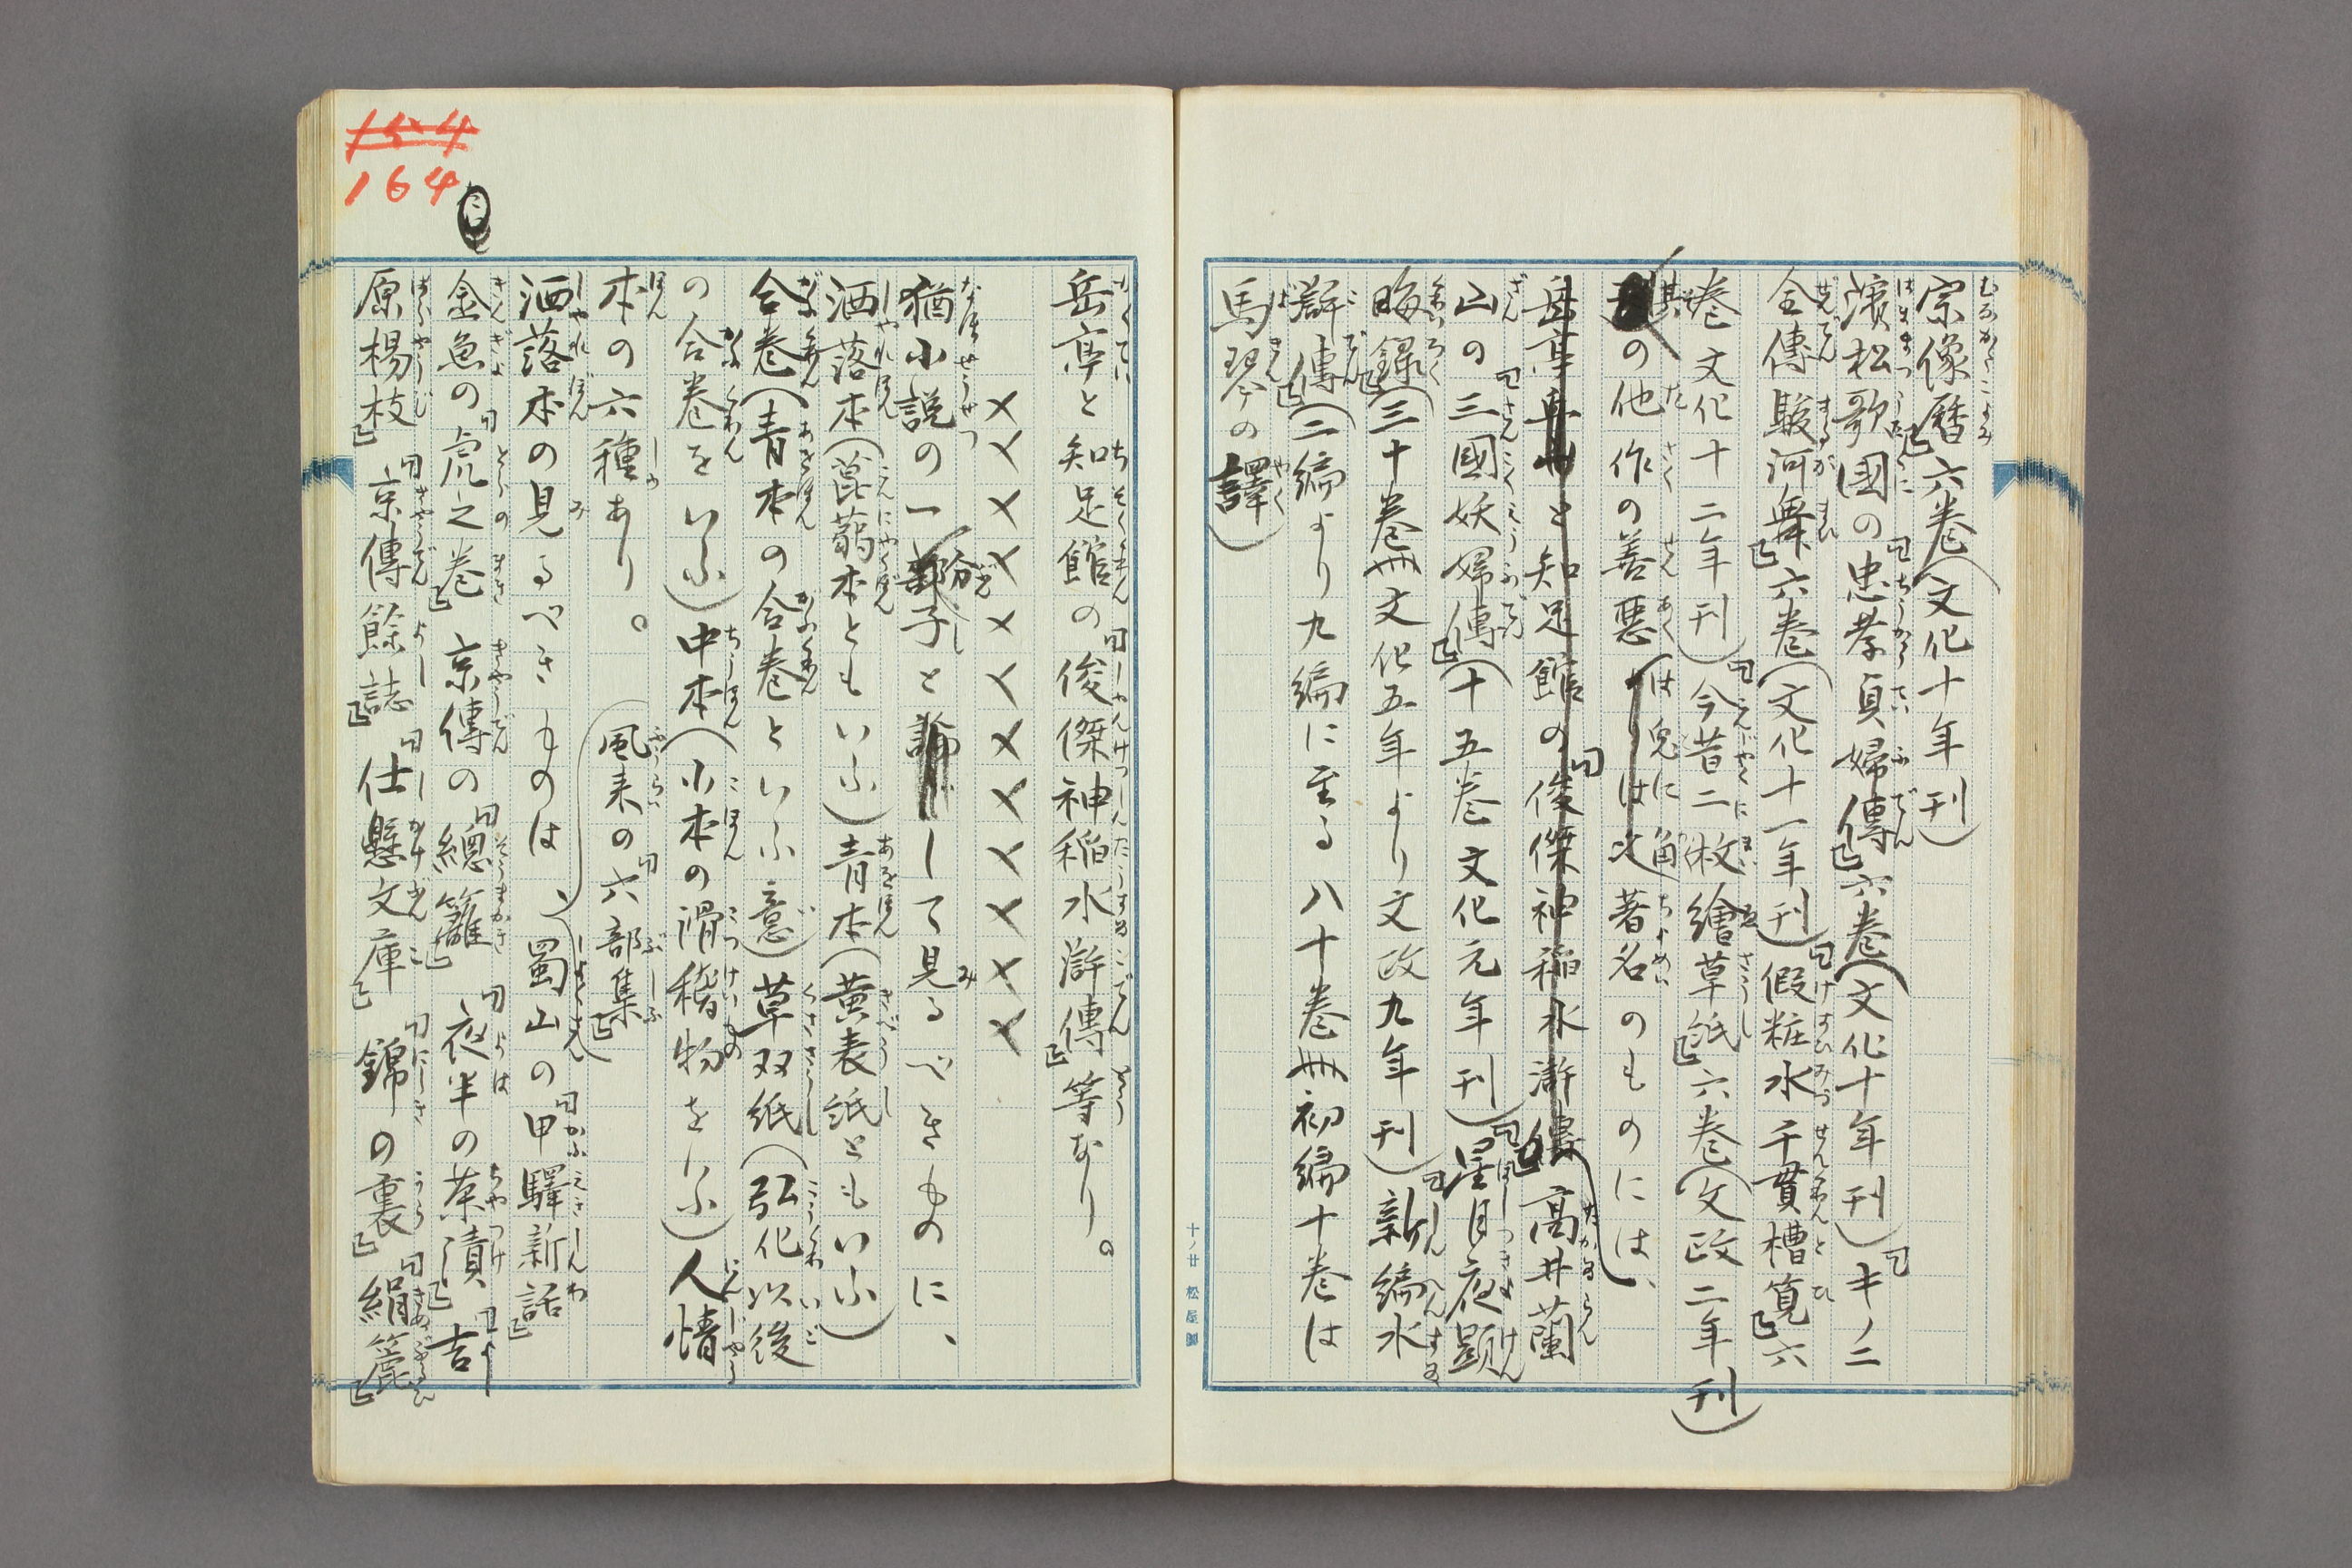 宗像暦』六卷(文化十年刊)『
濱松歌國の『忠孝貞婦傳』六卷(文化十年刊)『キノニ
全傳駿河舞』六卷(文化十一年刊)『假粧水千貫樋筧』六
卷文化十二年刊)『今昔二枚繪草紙』六卷(文政二年刊)
其の他作の善惡は兎に角著名のものには、
岳亭と知足館の『俊傑神稲水滸傳』高井蘭
山の『三國妖婦傳』(十五卷文化元年刊)『星月夜顕
晦録』(三十卷冊文化五年より文政九年刊)『新編水
滸傳』(二編より九編に至る八十卷冊初編十卷は
馬琴の譯)
十ノ廿 松屋製
154
164
岳亭と知足館の『俊傑神稲水滸傳』等なり。
××××××××××××
猶小説の一部分子として見るべきものに、
洒落本(蒟蒻本ともいふ)青本(黄表紙ともいふ)
合卷(青本の合卷といふ意)草双紙(弘化以後
の合卷をいふ)中本(小本の滑稽物をいふ)人情
本の六種あり。
風来の『六部集』
洒落本の見るべきものは、蜀山の『甲驛新話』
金魚の『虎之卷』京傳の『總籬』『夜半の茶漬』『吉
原楊枝』『京傳餘誌』『仕懸文庫』『錦の裏』『絹簏』